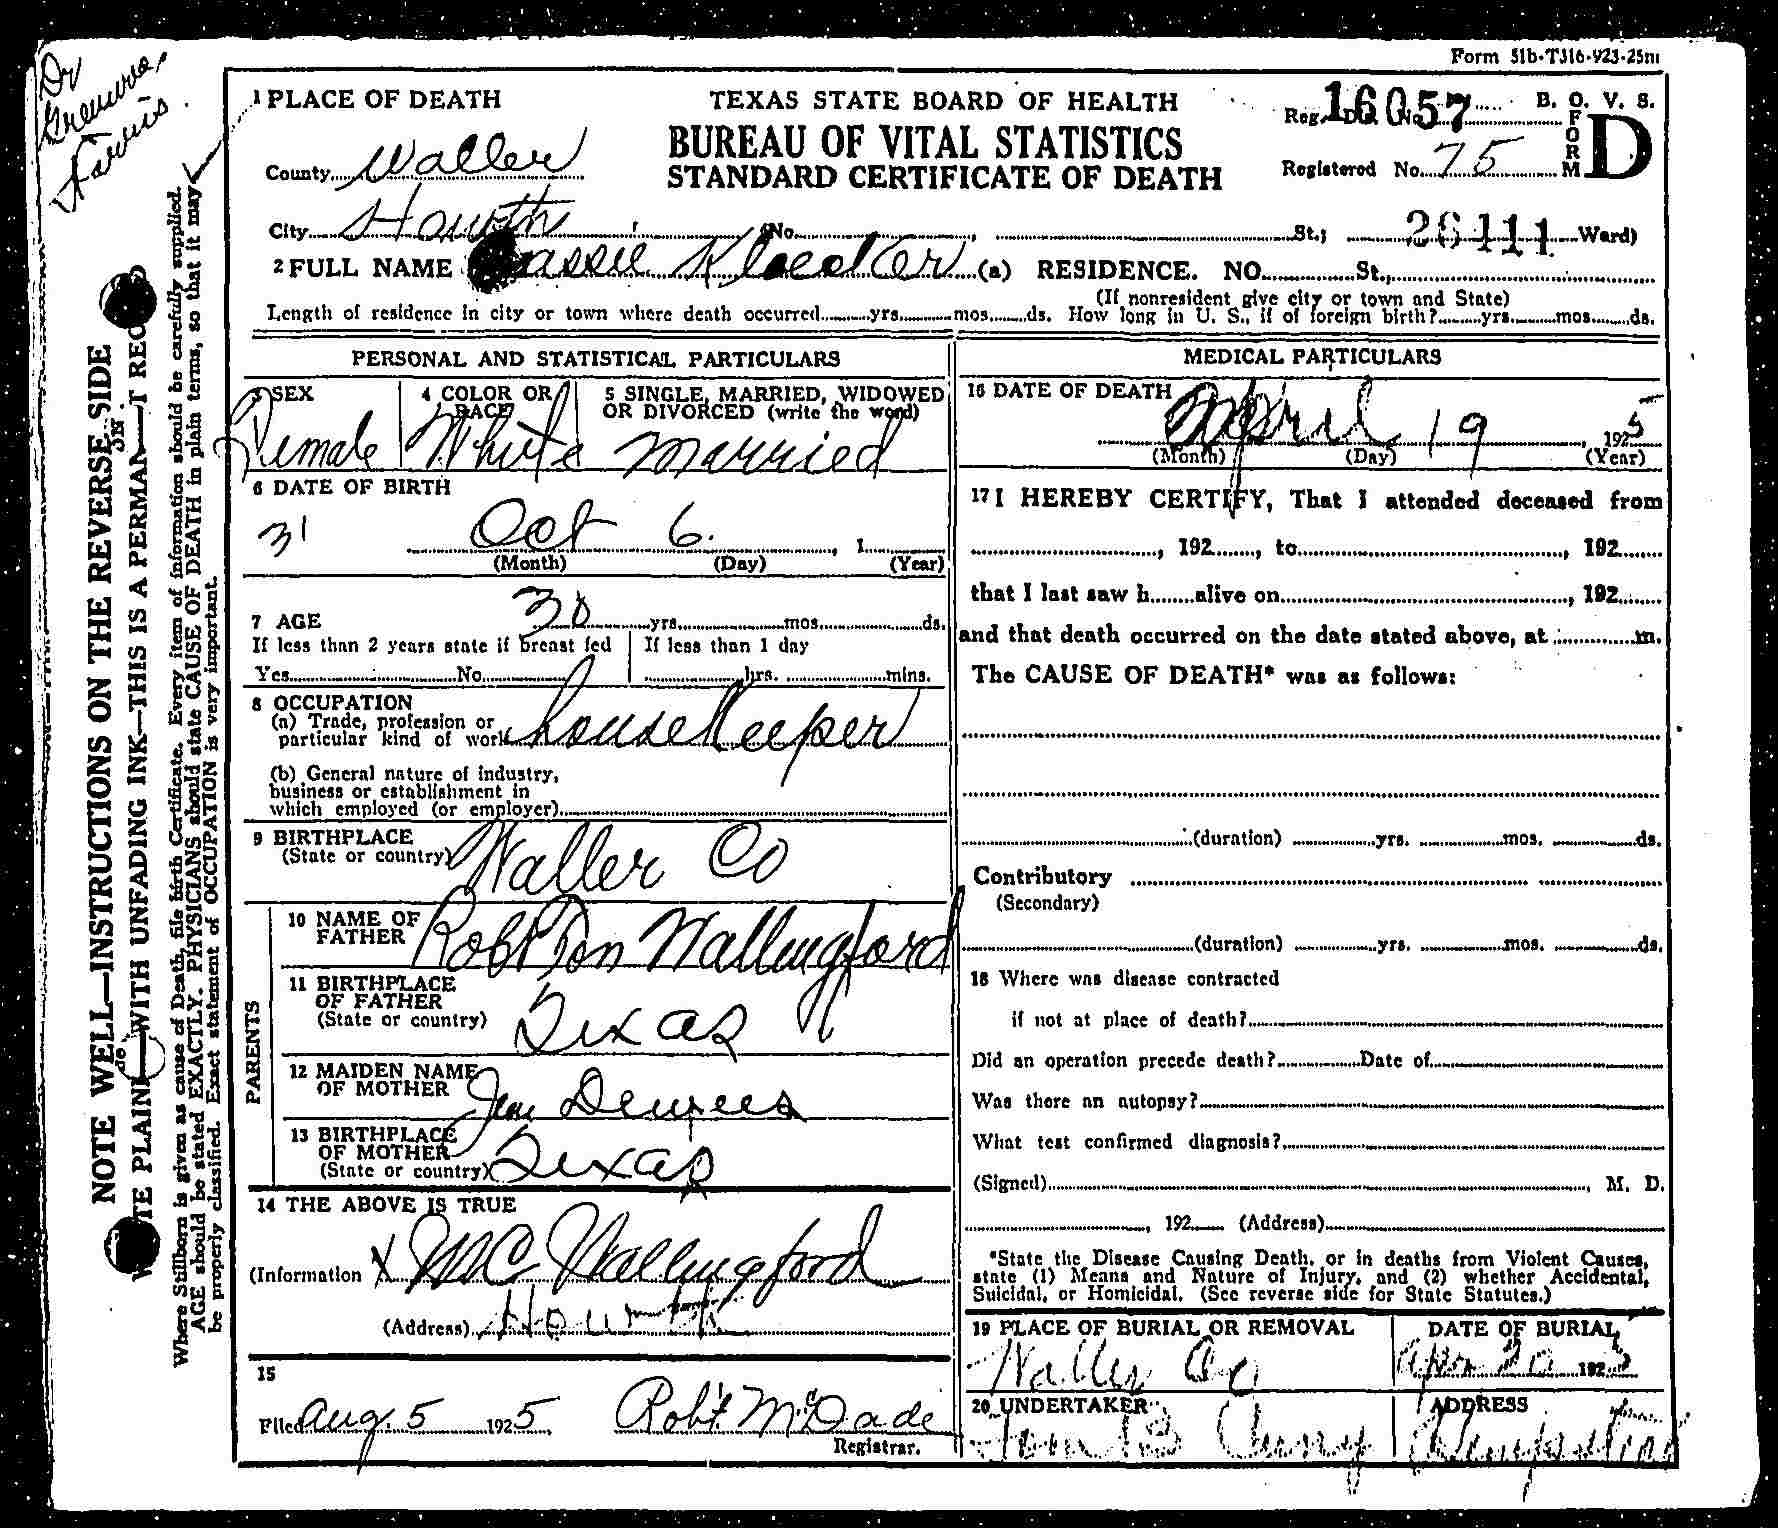 Form 51b-T316-923-25m
Dr
1 PLACE OF DEATH
TEXAS STATE BOARD OF HEALTH
BUREAU OF VITAL STATISTICS
STANDARD CERTIFICATE OF DEATH
Reg. Dis. No. 16057
B. O. V. S.
FORM D
Registered No. 75
County Waller
City Howth (No. St.; 26111 Ward)
2 FULL NAME Kloecker (a) RESIDENCE. NO. St.,
(If nonresident give city or town and State)
Length of residence in city or town where death occurred yrs. mos. ds. How long in U. S., if of foreign birth? yrs. mos. ds.
PERSONAL AND STATISTICAL PARTICULARS
3 SEX
Female
4 COLOR OR RACE
White
5 SINGLE, MARRIED, WIDOWED
OR DIVORCED (write the word)
married
6 DATE OF BIRTH
31 Oct 6. , 1
(Month) (Day) (Year)
7 AGE 30 yrs. mos. ds.
If less than 2 years state if breast fed
Yes No
If less than 1 day
hrs. mins.
8 OCCUPATION
(a) Trade, profession or
particular kind of work housekeeper
(b) General nature of industry,
business or establishment in
which employed (or employer)
9 BIRTHPLACE
(State or country) Waller Co
PARENTS
10 NAME OF
FATHER Robt Ton Wallingford
11 BIRTHPLACE
OF FATHER
(State or country) Texas
12 MAIDEN NAME
OF MOTHER Dewees
13 BIRTHPLACE
OF MOTHER
(State or country) Texas
14 THE ABOVE IS TRUE
(Information X MC Wallingford
(Address) Howth
15
Filed Aug. 5 1925, Rob't. McDade
Registrar.
MEDICAL PARTICULARS
16 DATE OF DEATH
April 19 , 1925
(Month) (Day) (Year)
17 I HEREBY CERTIFY, That I attended deceased from
, 192 , to , 192
that I last saw h alive on , 192
and that death occurred on the date stated above, at m.
The CAUSE OF DEATH* was as follows:
(duration) yrs. mos. ds.
Contributory
(Secondary)
(duration) yrs. mos. ds.
18 Where was disease contracted
if not at place of death?
Did an operation precede death? Date of
Was there an autopsy?
What test confirmed diagnosis?
(Signed) , M. D.
, 192 (Address)
*State the Disease Causing Death, or in deaths from Violent Causes,
state (1) Means and Nature of Injury, and (2) whether Accidental,
Suicidal, or Homicidal. (See reverse side for State Statutes.)
19 PLACE OF BURIAL OR REMOVAL
Waller Co
DATE OF BURIAL
Apr 20 192
20 UNDERTAKER
ADDRESS
Hempstead
NOTE WELL—INSTRUCTIONS ON THE REVERSE SIDE
PLAIN WITH UNFADING INK—THIS IS A PERMAN
Where Stillborn is given as cause of Death, file birth Certificate. Every item of information should be carefully supplied.
AGE should be stated EXACTLY. PHYSICIANS should state CAUSE OF DEATH in plain terms, so that it may
be properly classified. Exact statement of OCCUPATION is very important.